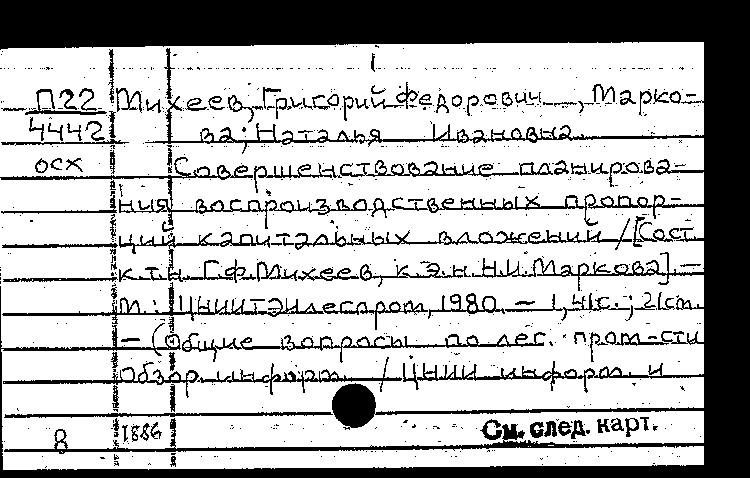 П22 Михеев, Григорий Федорович, Марко-
4442 ва, Наталья Ивановна.
осх Совершенствование планирова-
ния воспроизводственных пропор-
ций капитальных вложений / [Сост.
к.т.н. Г.Ф. Михеев, к.э.н. Н.И. Маркова]. —
М.: ЦНИИТЭИлеспром, 1980. — 1, 41с.; 21см.
— (Общие вопросы по лес. пром-сти
Обзор. информ. / ЦНИИ информ. и
8 1886 См. след. карт.